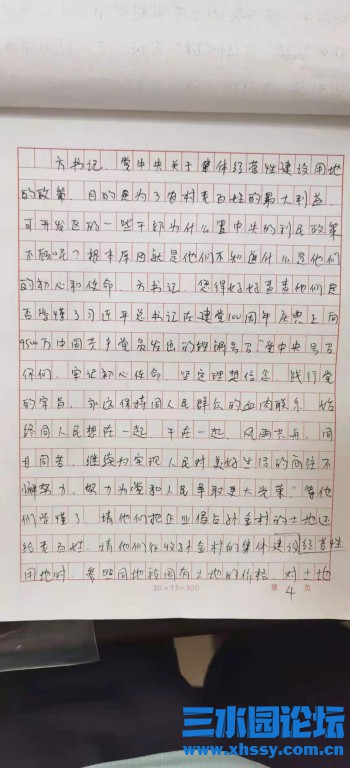 方书记、党中央关于集体经营性建设用地
的政策、目的是为了农村老百姓的最大利益、
可开发区的一些干部为什么置中央的利民政策
不顾呢？根本原因就是他们不知道什么是他们
的初心和使命、方书记、您得好好查查他们是
否学懂了习近平总书记在建党100周年庆典上向
9500万中国共产党员发出的强调号召"党中央号召
你们、牢记初心使命、坚定理想信念、践行党
的宗旨、永远保持同人民群众的血肉联系、始
终同人民想在一起、干在一起、风雨共舟、同
甘同苦、继续为实现人民对美好生活的向往不
懈努力、努力为党和人民争取更大光荣"等他
们学懂了、请他们把企业侵占孙金村的土地还
给老百姓、请他们在收孙金村的集体建设经营性
用地时、参照同地段国有土地的价格、对土地
20×15=300
第4页
三水园论坛
www.xhssy.com.cn